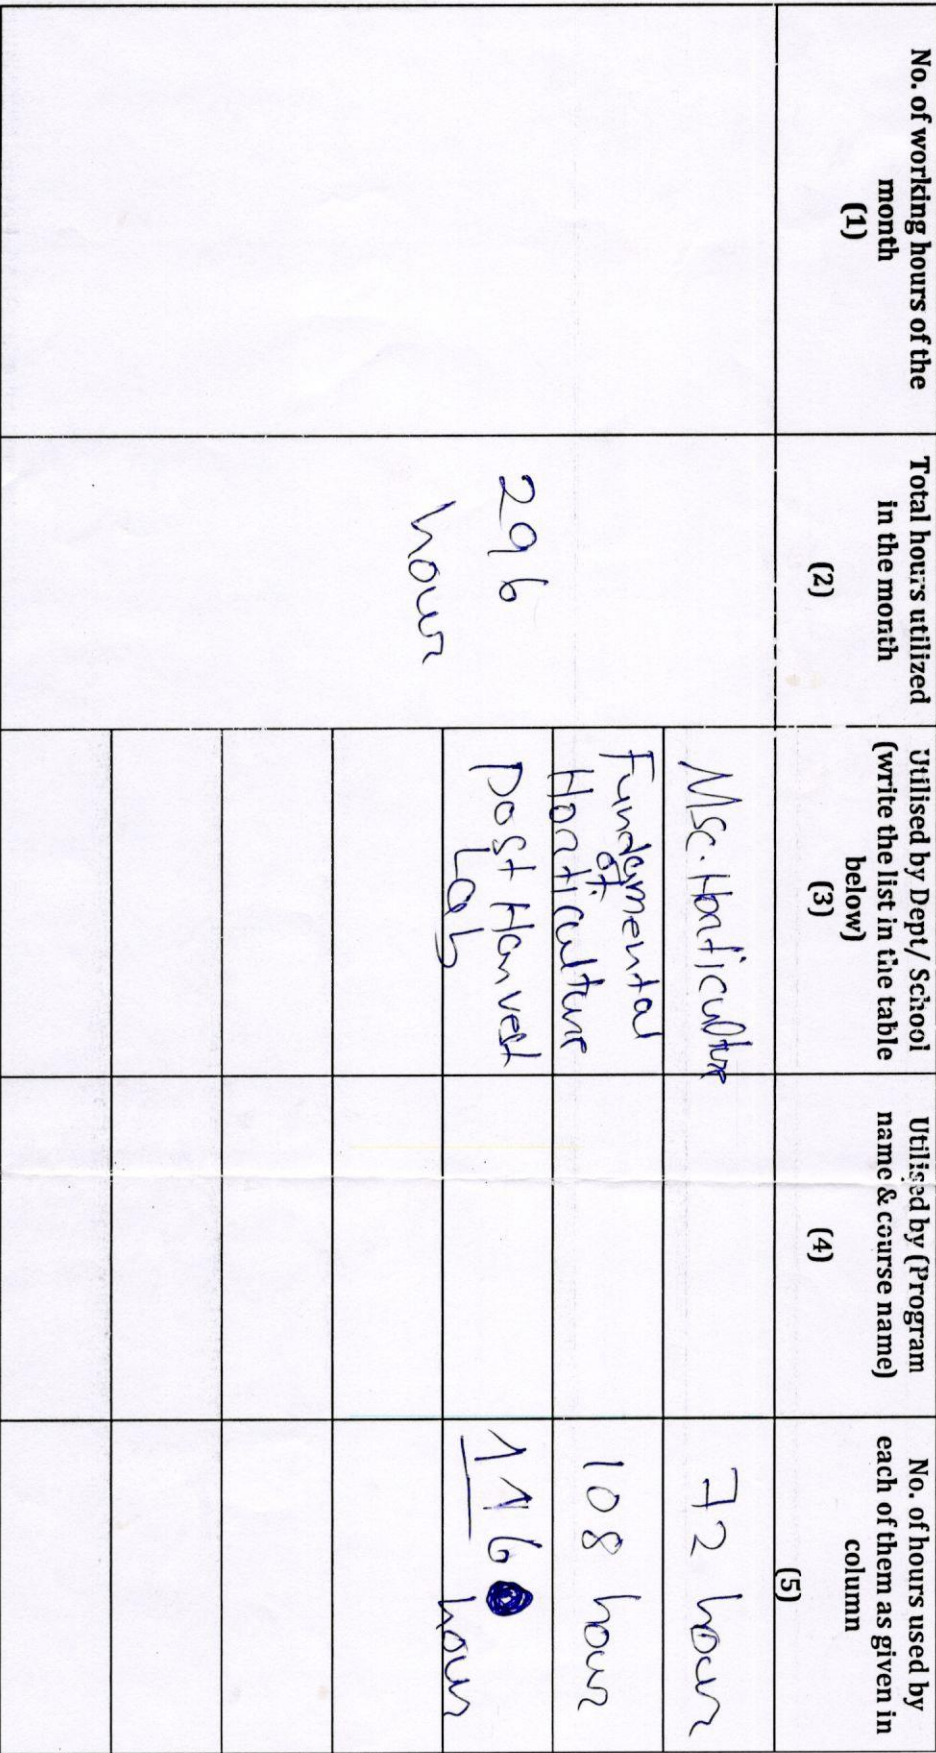 No. of working hours of the
month
(1)
Total hours utilized
in the month
(2)
Utilised by Dept/ School
(write the list in the table
below)
(3)
Utilised by (Program
name & course name)
(4)
No. of hours used by
each of them as given in
column
(5)
296
hour
Msc. Horticulture
72 hour
Fundamental
of
Horticulture
108 hour
Post Harvest
Lab
116
hour